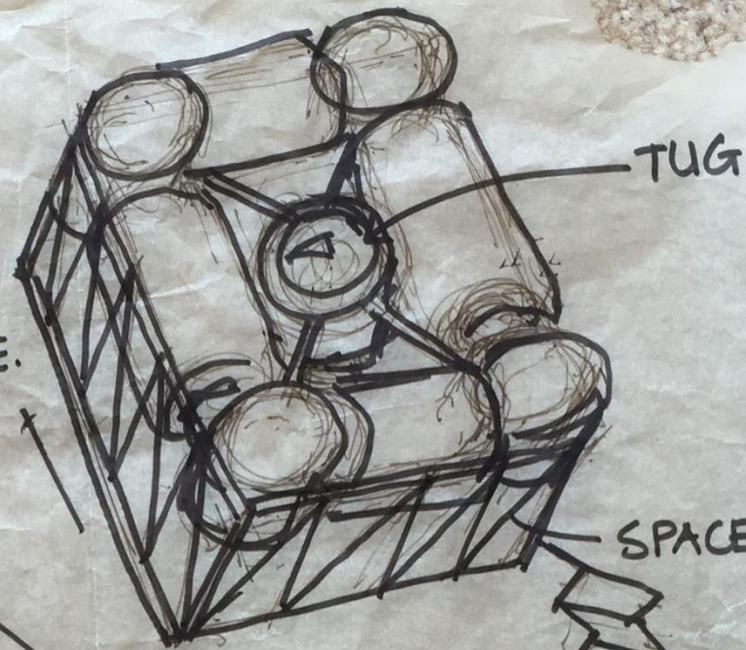 TUG
E.
SPACE